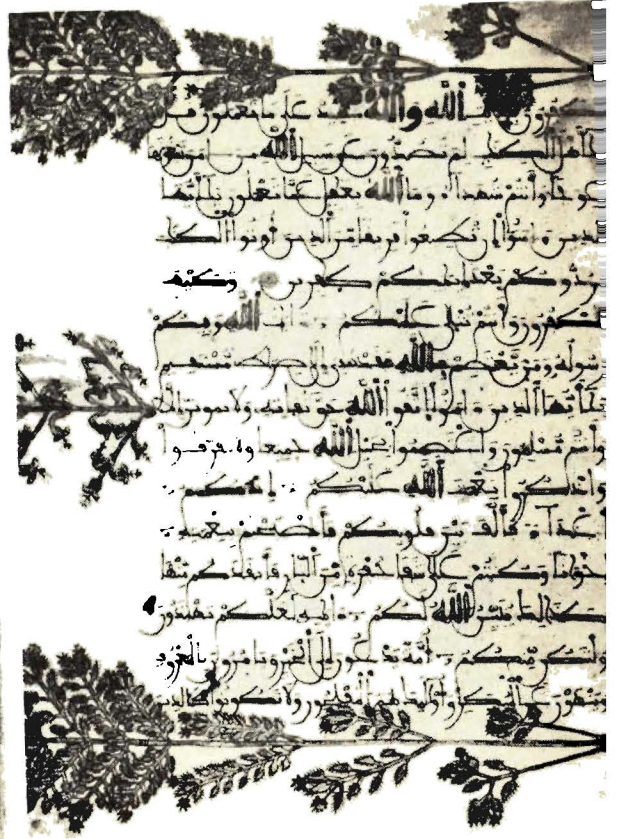 تكفرون بـ الله والله شهيد على ما تعملون قل
يأهل الكتب لم تصدون عن سبيل الله من امن تبغونها
عوجا وأنتم شهدا وما الله بغفل عما تعملون يأيها
الذين امنوا إن تطيعوا فريقا من الذين أوتوا الكتب
يردوكم بعد إيمنكم كفرين وكيف
تكفرون وأنتم تتلى عليكم ايت الله وفيكم
رسوله ومن يعتصم بالله فقد هدى إلى صرط مستقيم
يأيها الذين امنوا اتقوا الله حق تقاته ولا تموتن إلا
وأنتم مسلمون واعتصموا بحبل الله جميعا ولا تفرقوا
واذكروا نعمت الله عليكم إذ كنتم
أعدا فألف بين قلوبكم فأصبحتم بنعمته
إخونا وكنتم على شفا حفرة من النار فأنقذكم منها
كذلك يبين الله لكم ايته لعلكم تهتدون
ولتكن منكم أمة يدعون إلى الخير ويأمرون بالمعروف
وينهون عن المنكر وأولئك هم المفلحون ولا تكونوا كالذين